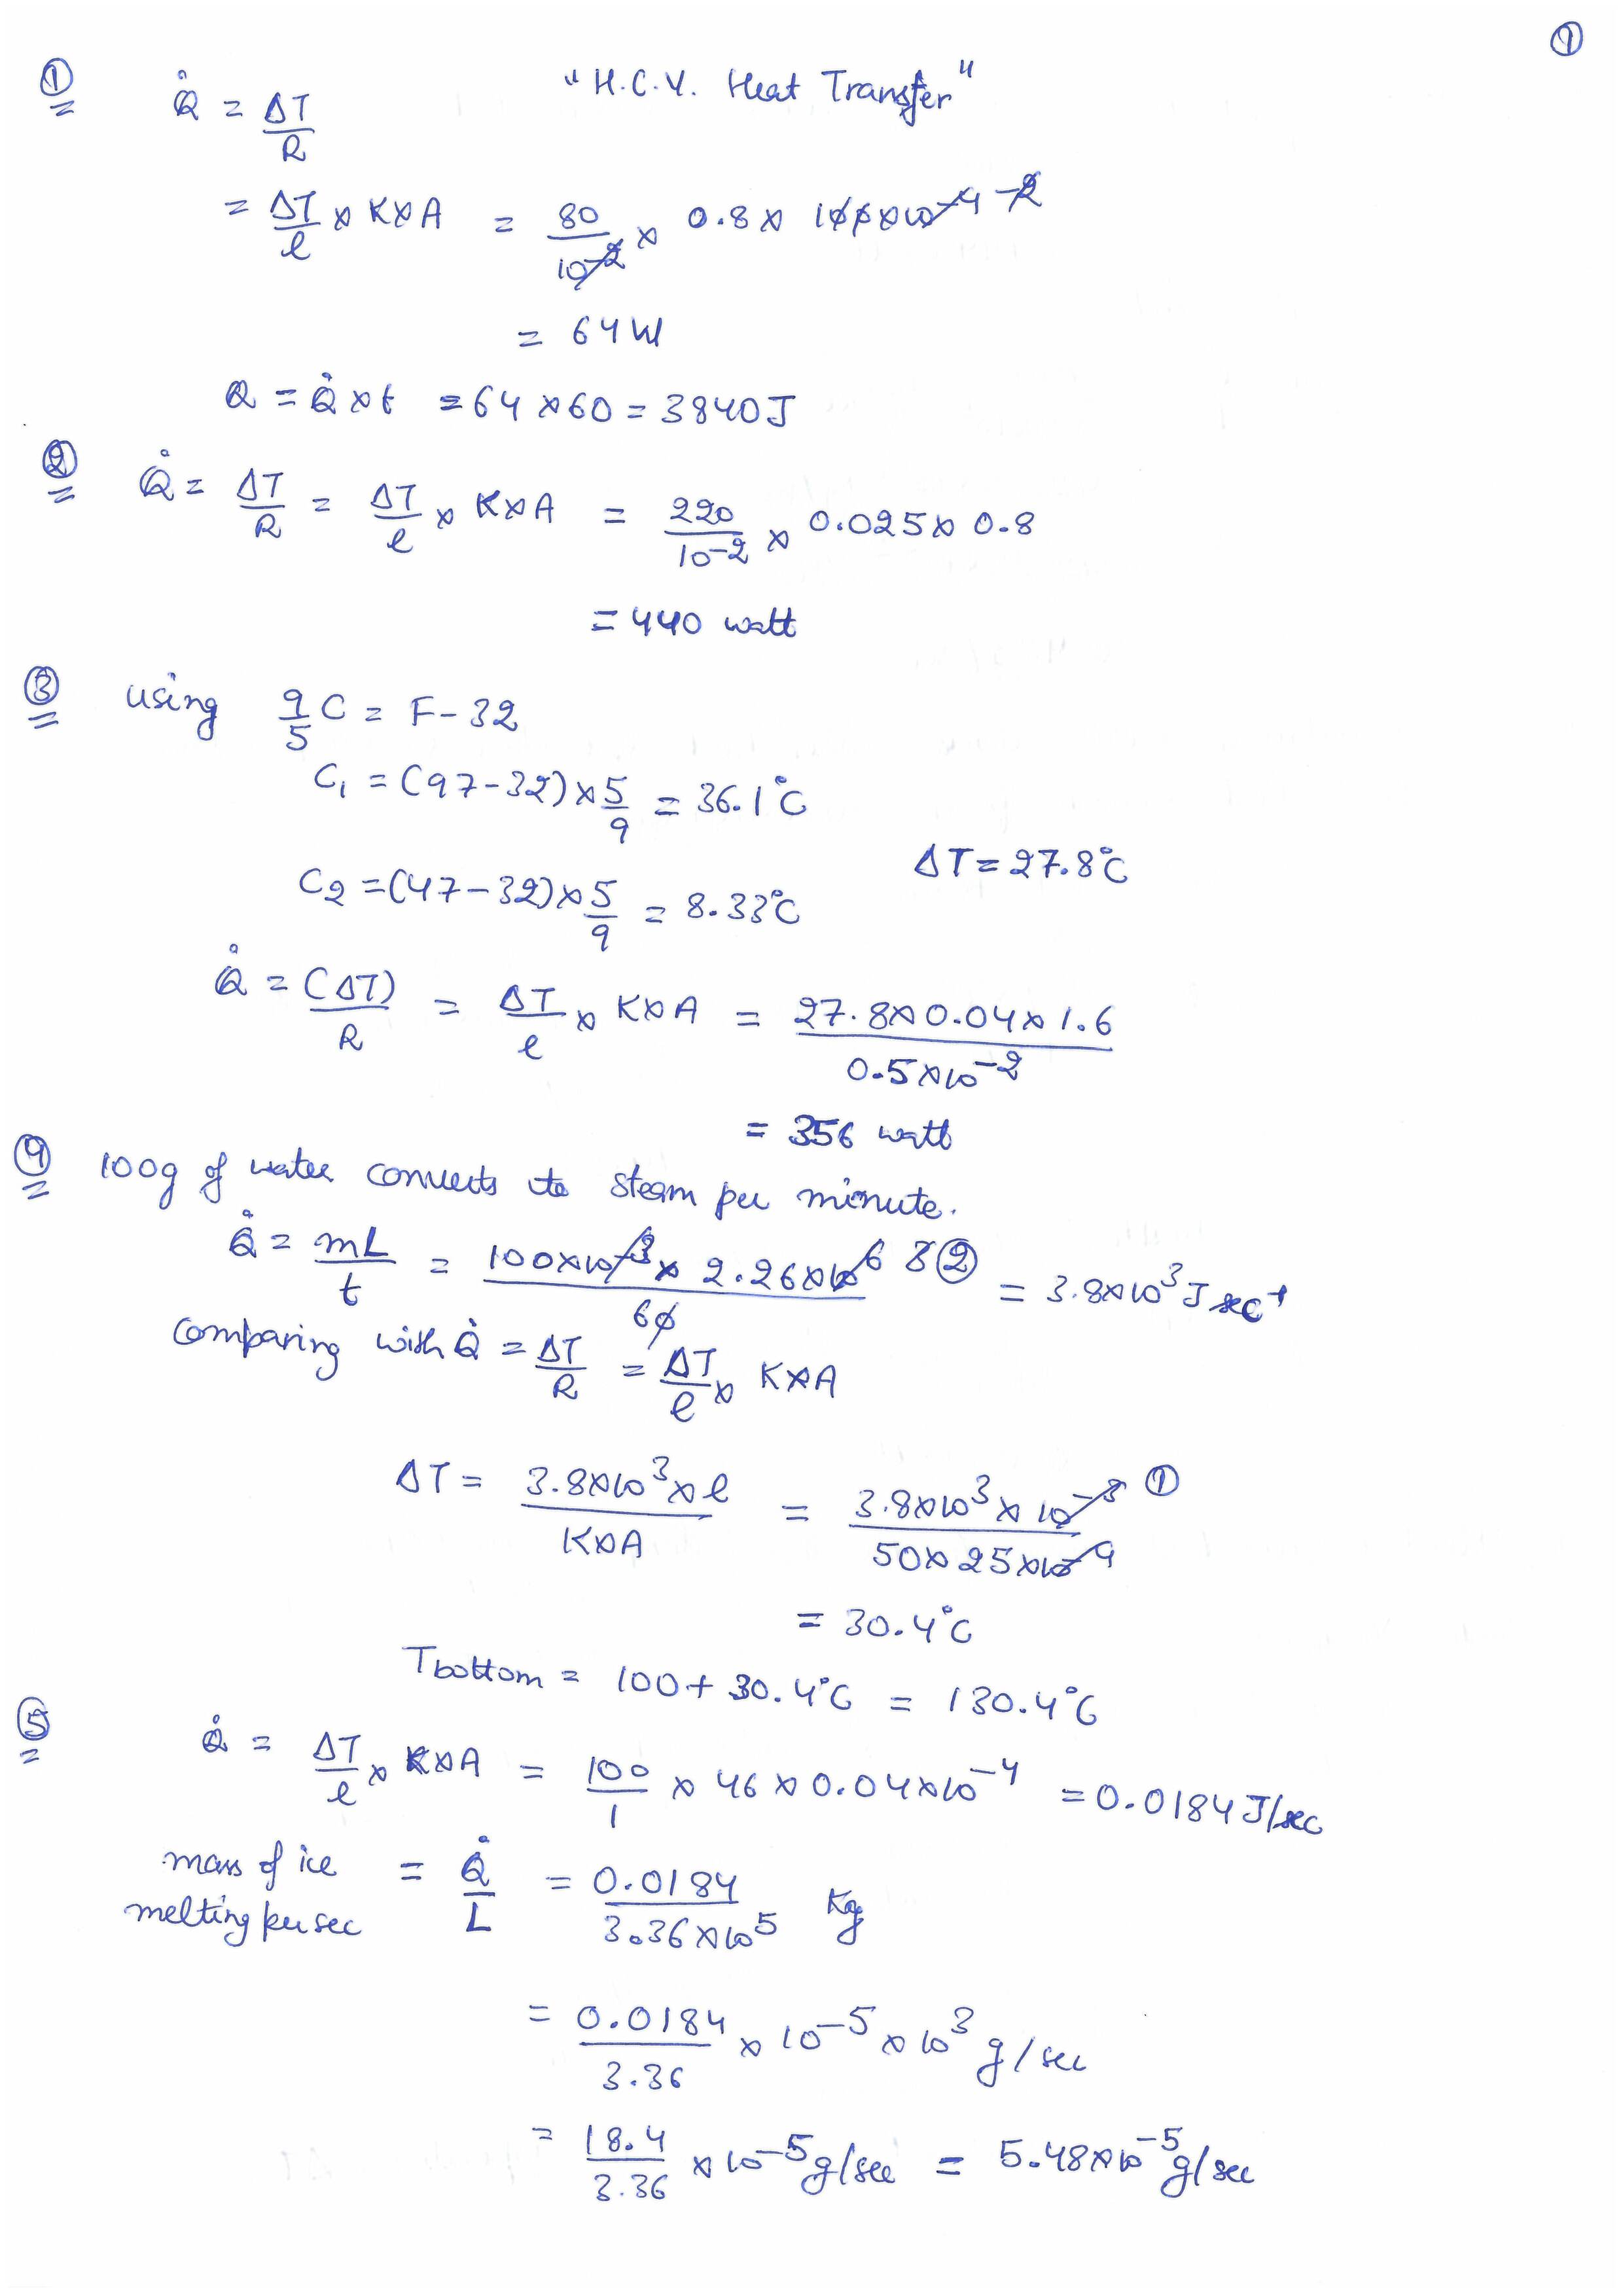 ①
① Q̇ = ΔT/R "H.C.V. Heat Transfer"
= ΔT/l × K×A = 80/10⁻² × 0.8 × 100×10⁻⁴ ⁻²
= 64W
Q = Q̇×t = 64×60 = 3840J
② Q̇ = ΔT/R = ΔT/l × K×A = 220/10⁻² × 0.025×0.8
= 440 watt
③ using 9/5 C = F-32
C₁ = (97-32)×5/9 = 36.1°C
ΔT = 27.8°C
C₂ = (47-32)×5/9 = 8.33°C
Q̇ = (ΔT)/R = ΔT/l × K×A = 27.8×0.04×1.6/0.5×10⁻²
= 356 watt
④ 100g of water converts to steam per minute.
Q̇ = mL/t = 100×10⁻³×2.26×10⁶/60 ② = 3.8×10³J sec⁻¹
Comparing with Q̇ = ΔT/R = ΔT/l × K×A
ΔT = 3.8×10³×l/K×A = 3.8×10³×10⁻³/50×25×10⁻⁴ ①
= 30.4°C
Tbottom = 100+30.4°C = 130.4°C
⑤ Q̇ = ΔT/l × K×A = 100/1 × 46×0.04×10⁻⁴ = 0.0184J/sec
mass of ice melting per sec = Q̇/L = 0.0184/3.36×10⁵ Kg
= 0.0184/3.36 × 10⁻⁵×10³ g/sec
= 18.4/3.36 × 10⁻⁵g/sec = 5.48×10⁻⁵g/sec